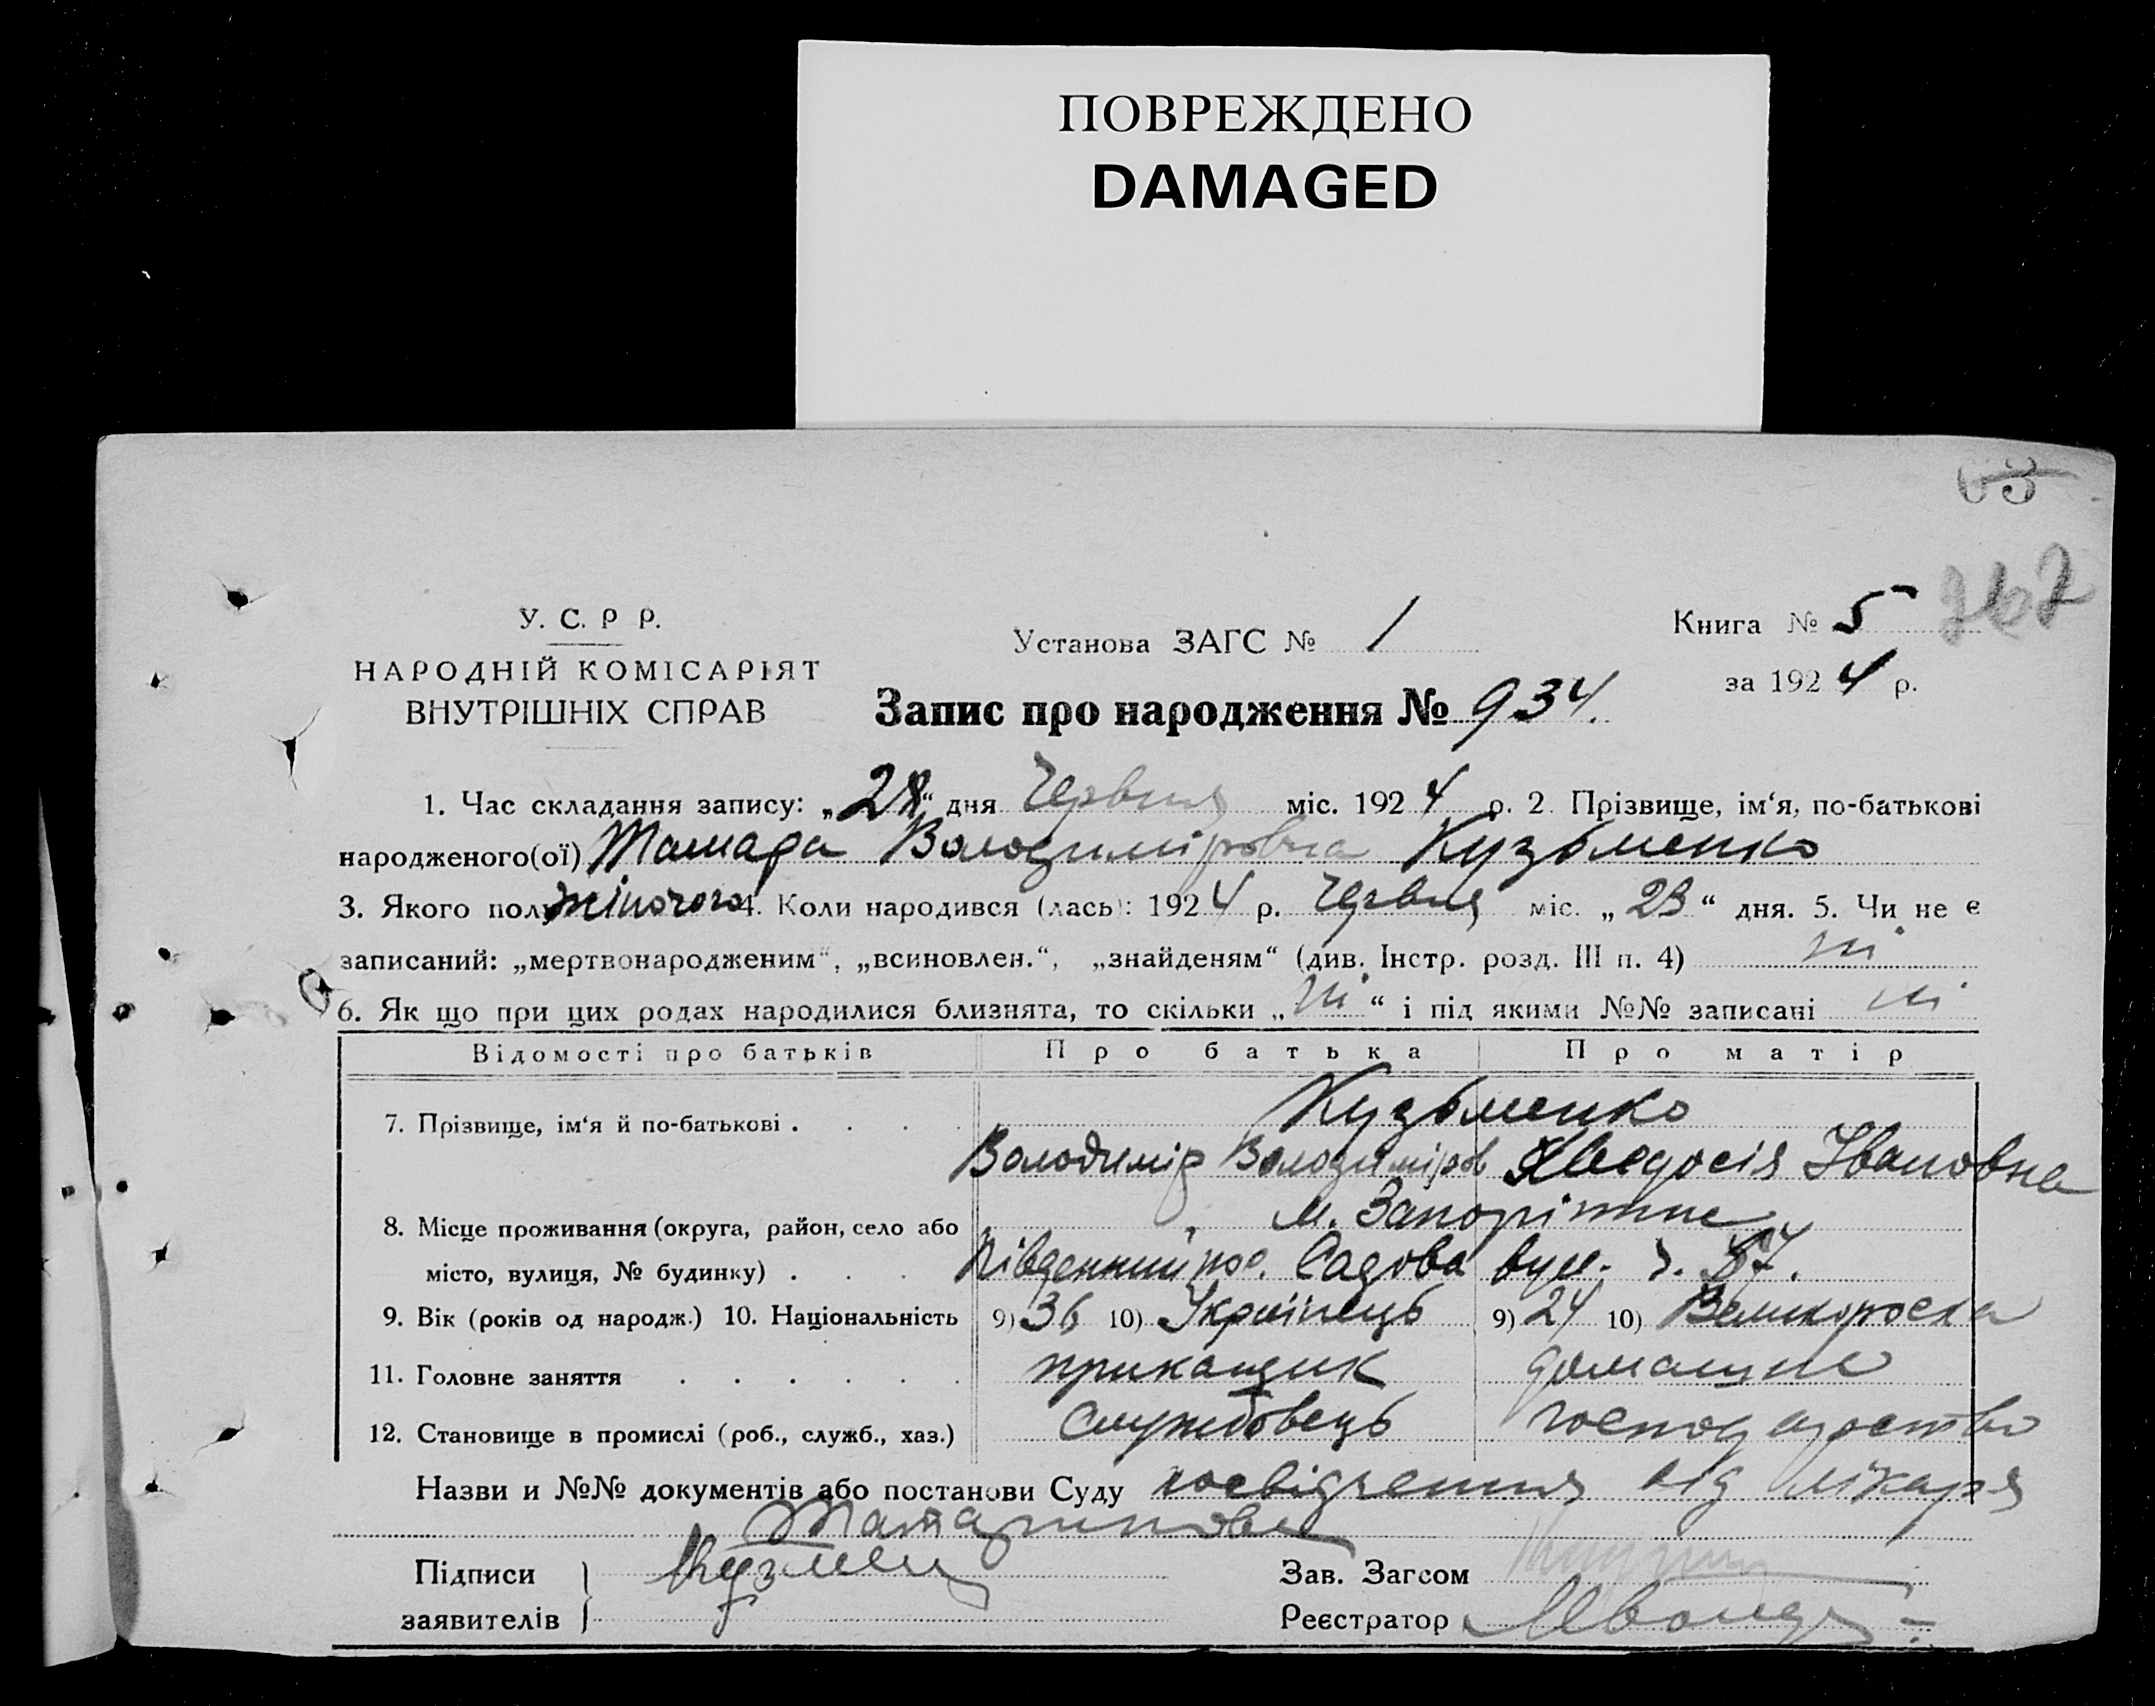 ПОВРЕЖДЕНО
DAMAGED
63
У. С. Р Р.
НАРОДНІЙ КОМІСАРІЯТ
ВНУТРІШНІХ СПРАВ
Установа ЗАГС № 1
Книга № 5
за 1924 р.
Запис про народження № 934.
1. Час складання запису: „28“ дня Червня міс. 1924 р. 2 Прізвище, ім‘я, по-батькові
народженого(ої) Тамара Володиміровна Кузьменко
3. Якого полу жіночого 4. Коли народився (лась): 1924 р. Червня міс. „23“ дня. 5. Чи не є
записаний: „мертвонародженим“, „всиновлен.“, „знайденям“ (див. Інстр. розд. III п. 4) ні
6. Як що при цих родах народилися близнята, то скільки „ні“ і під якими №№ записані ні
Відомості про батьків Про батька Про матір
7. Прізвище, ім‘я й по-батькові . . . . Кузьменко
Володимір Володиміров Хведосія Івановна
8. Місце проживання (округа, район, село або м. Запоріжже
місто, вулиця, № будинку) . . . Південний пос. Садова вул. д. 87.
9. Вік (років од народж.) 10. Національність 9) 36 10) Українець 9) 24 10) Великороска
11. Головне заняття . . . . . . прикащик домашнє
12. Становище в промислі (роб., служб., хаз.) службовець господарство
Назви и №№ документів або постанови Суду посвідчення від лікаря
Татаринова
Підписи Кузмен Зав. Загсом
заявителів Реєстратор